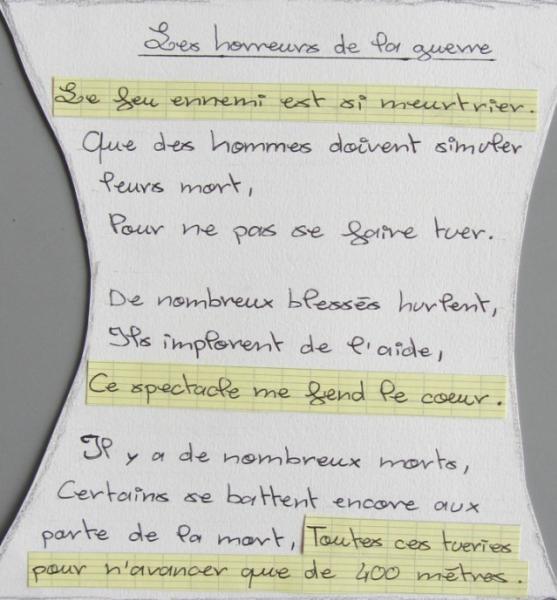 Les horreurs de la guerre
Le feu ennemi est si meurtrier.
Que des hommes doivent simuler
leurs mort,
Pour ne pas se faire tuer.
De nombreux blessés hurlent,
Ils implorent de l'aide,
Ce spectacle me fend le coeur.
Il y a de nombreux morts,
Certains se battent encore aux
parte de la mort, Toutes ces tueries
pour n'avancer que de 400 mètres.